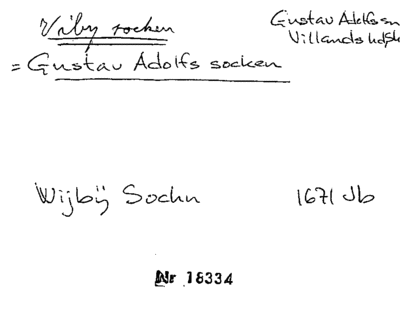 Viby socken
Gustav Adolfs sn
Villands hd
= Gustav Adolfs socken
Wijbÿ Sochn 1671 Jb
Nr 18334